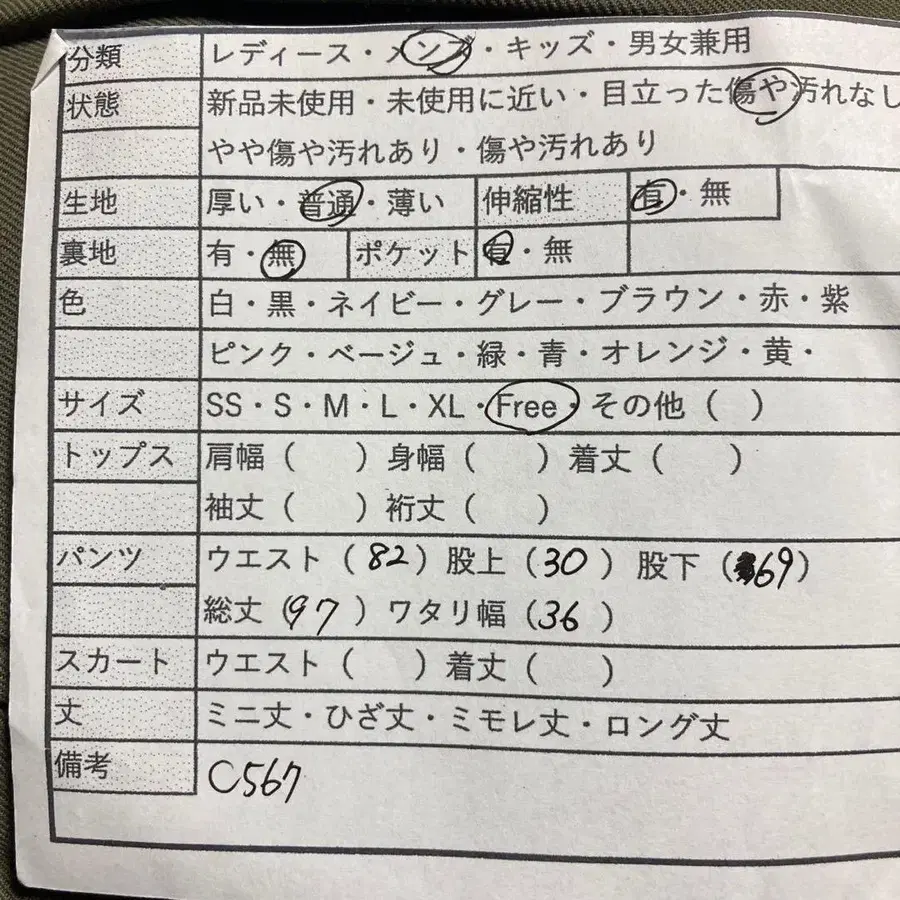 分類 レディース・メンズ・キッズ・男女兼用
状態 新品未使用・未使用に近い・目立った傷や汚れなし
やや傷や汚れあり・傷や汚れあり
生地 厚い・普通・薄い 伸縮性 有・無
裏地 有・無 ポケット 有・無
色 白・黒・ネイビー・グレー・ブラウン・赤・紫
ピンク・ベージュ・緑・青・オレンジ・黄・
サイズ SS・S・M・L・XL・Free・その他( )
トップス 肩幅( )身幅( )着丈( )
袖丈( )裄丈( )
パンツ ウエスト(82)股上(30)股下(69)
総丈(97)ワタリ幅(36)
スカート ウエスト( )着丈( )
丈 ミニ丈・ひざ丈・ミモレ丈・ロング丈
備考 C567